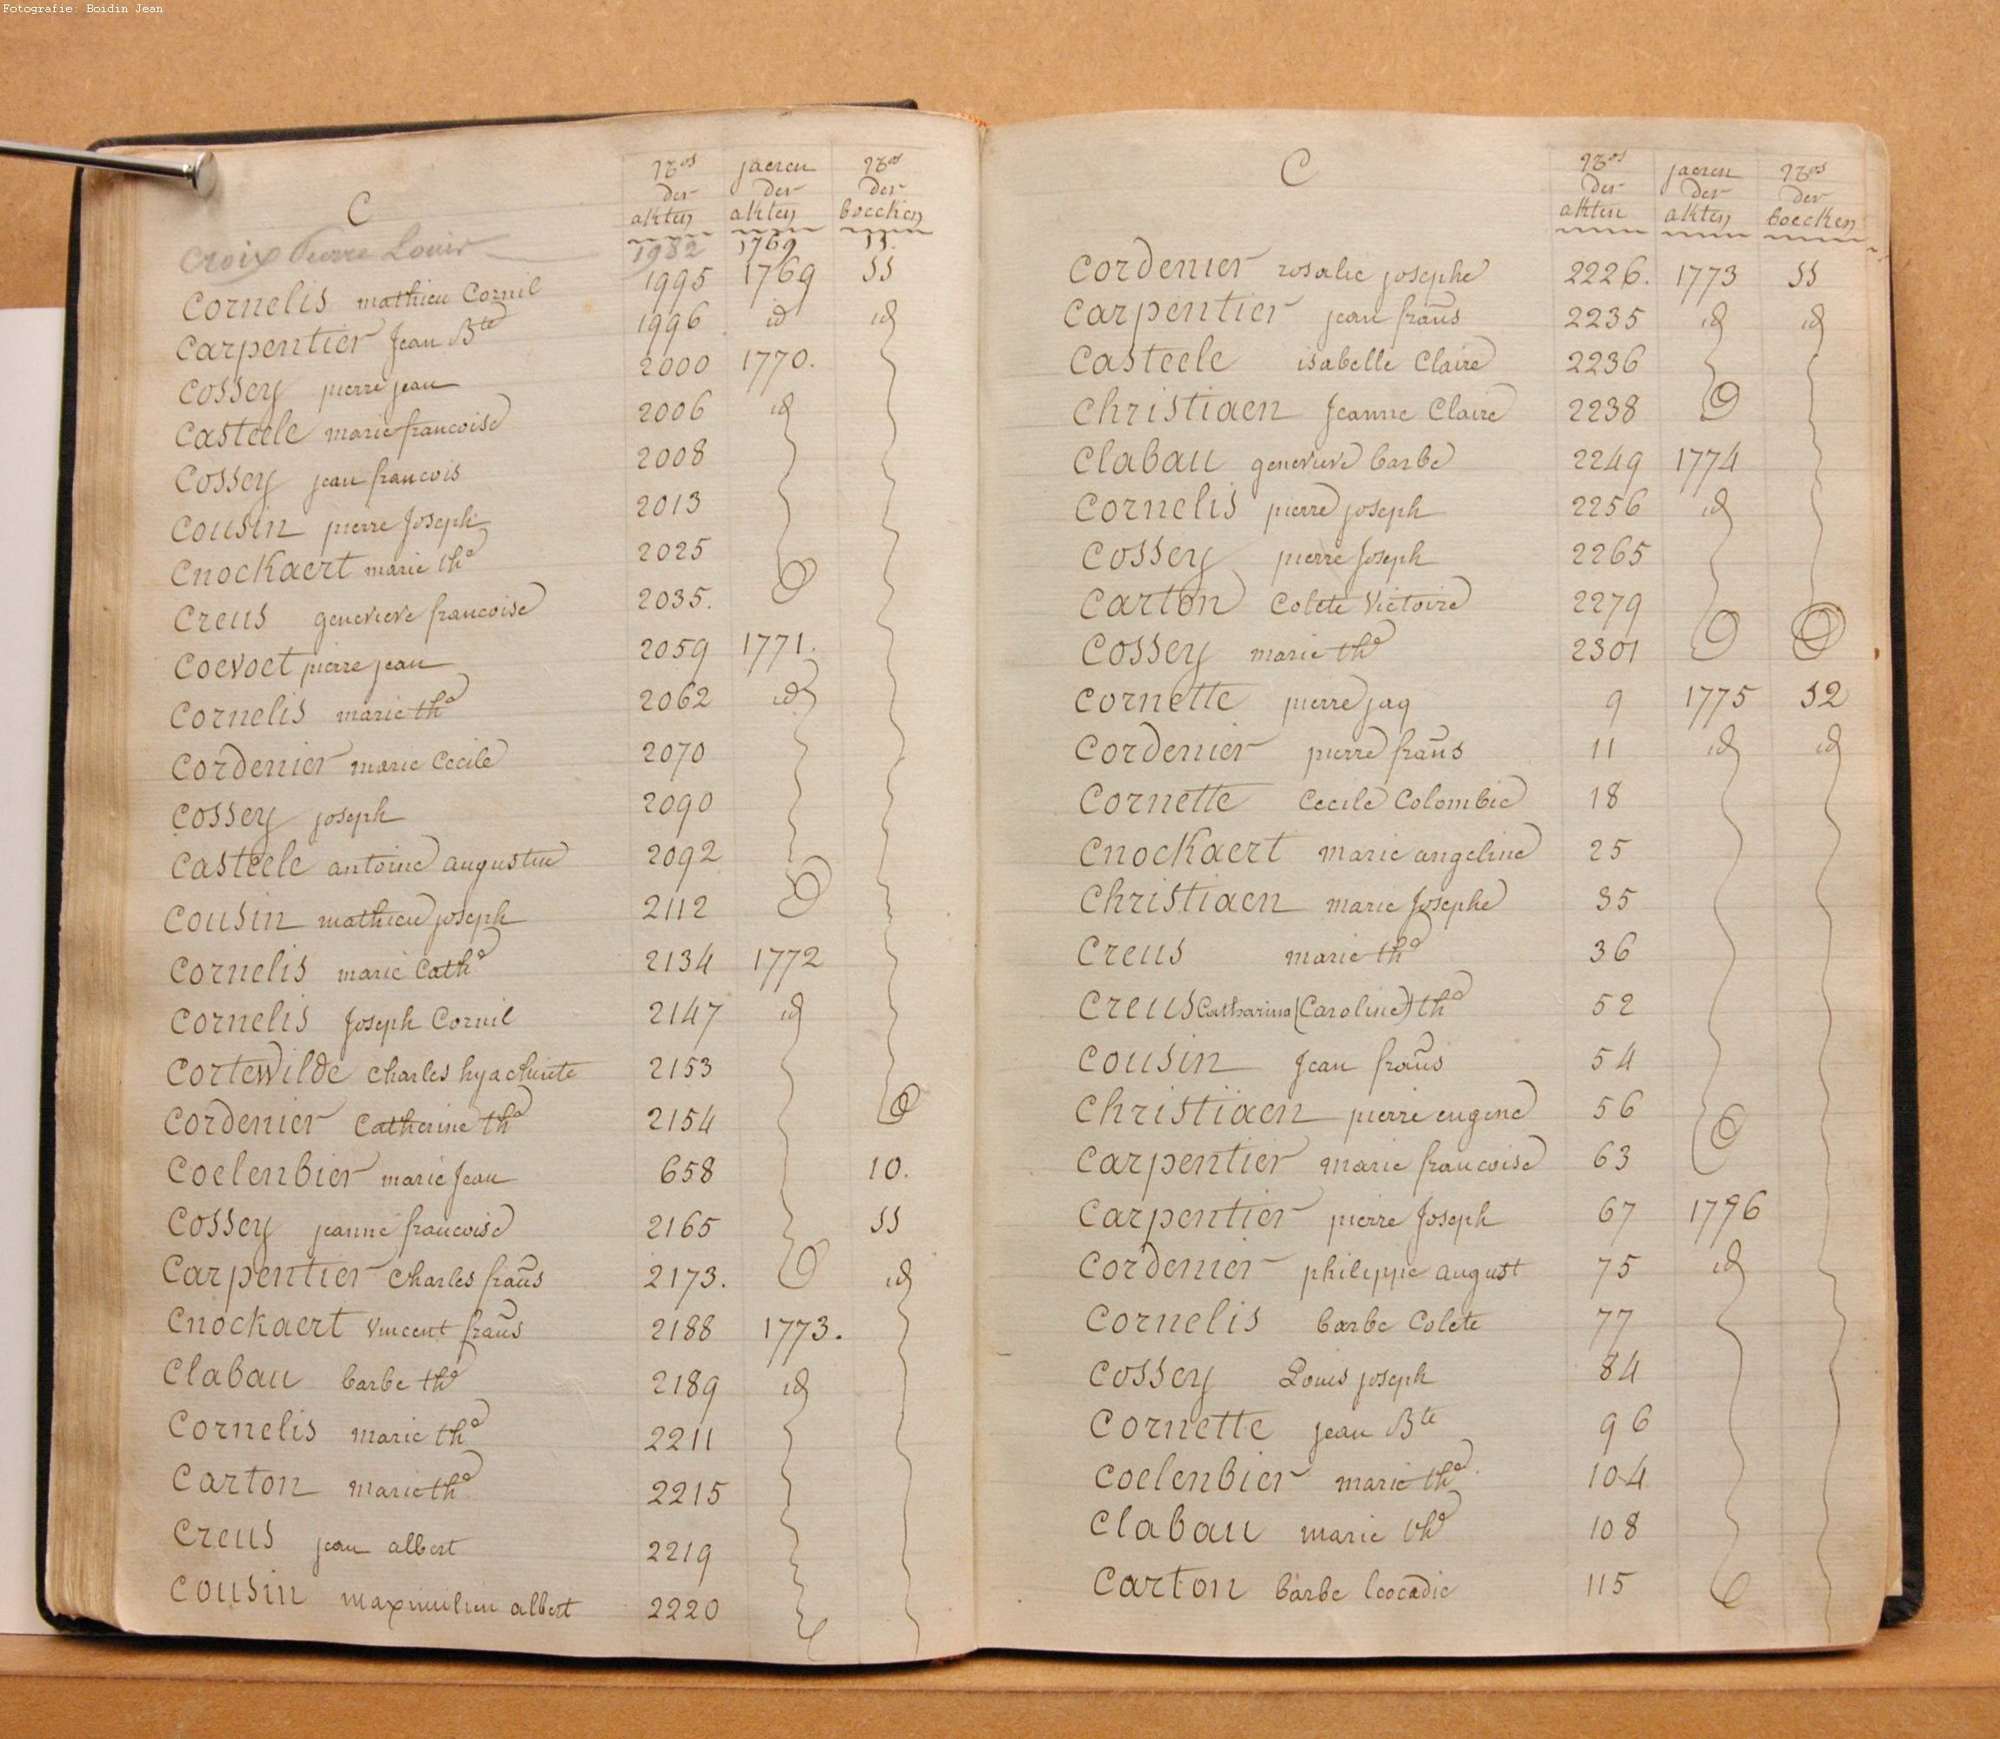 Fotografie: Boidin Jean
C
Nos der akten
jaeren der akten
Nos der boecken
Croix Pierre Louis 1982 1769 11.
Cornelis mathieu Cornil 1995 1769 11
Carpentier Jean Bte 1996 id id
Cossey pierre jean 2000 1770.
Casteele marie francoise 2006 id
Cossey jean francois 2008
Cousin pierre Joseph 2013
Cnockaert marie the 2025
Creus genevieve francoise 2035.
Coevoet pierre jean 2059 1771.
Cornelis marie the 2062 id
Cordenier marie Cecile 2070
Cossey joseph 2090
Casteele antoine augustin 2092
Cousin mathieu joseph 2112
Cornelis marie Cathe 2134 1772
Cornelis Joseph Cornil 2147 id
Cortewilde Charles hyachinte 2153
Cordenier Catherine the 2154
Coelenbier marie Jean 658 10.
Cossey jeanne francoise 2165 11
Carpentier Charles frans 2173. id
Cnockaert Vincent frans 2188 1773.
Clabau barbe the 2189 id
Cornelis marie the 2211
Carton marie the 2215
Creus jean albert 2219
Cousin maxmilien albert 2220
C
Nos der akten
jaeren der akten
Nos der boecken
Cordenier rosalie josephe 2226. 1773 11
Carpentier jean frans 2235 id id
Casteele isabelle Claire 2236
Christiaen Jeanne Claire 2238
Clabau genevieve barbe 2249 1774
Cornelis pierre joseph 2256 id
Cossey pierre Joseph 2265
Carton Colete Victoire 2279
Cossey marie the 2301
Cornette pierre jaq 9 1775 12
Cordenier pierre frans 11 id id
Cornette Cecile Colombie 18
Cnockaert marie angeline 25
Christiaen marie Josephe 35
Creus marie the 36
Creus Catharina (Caroline) the 52
Cousin Jean frans 54
Christiaen pierre eugene 56
Carpentier marie francoise 63
Carpentier pierre Joseph 67 1776
Cordenier philippe august 75 id
Cornelis barbe Colete 77
Cossey Louis joseph 84
Cornette jean Bte 96
Coelenbier marie the 104
Clabau marie the 108
Carton barbe leocadie 115